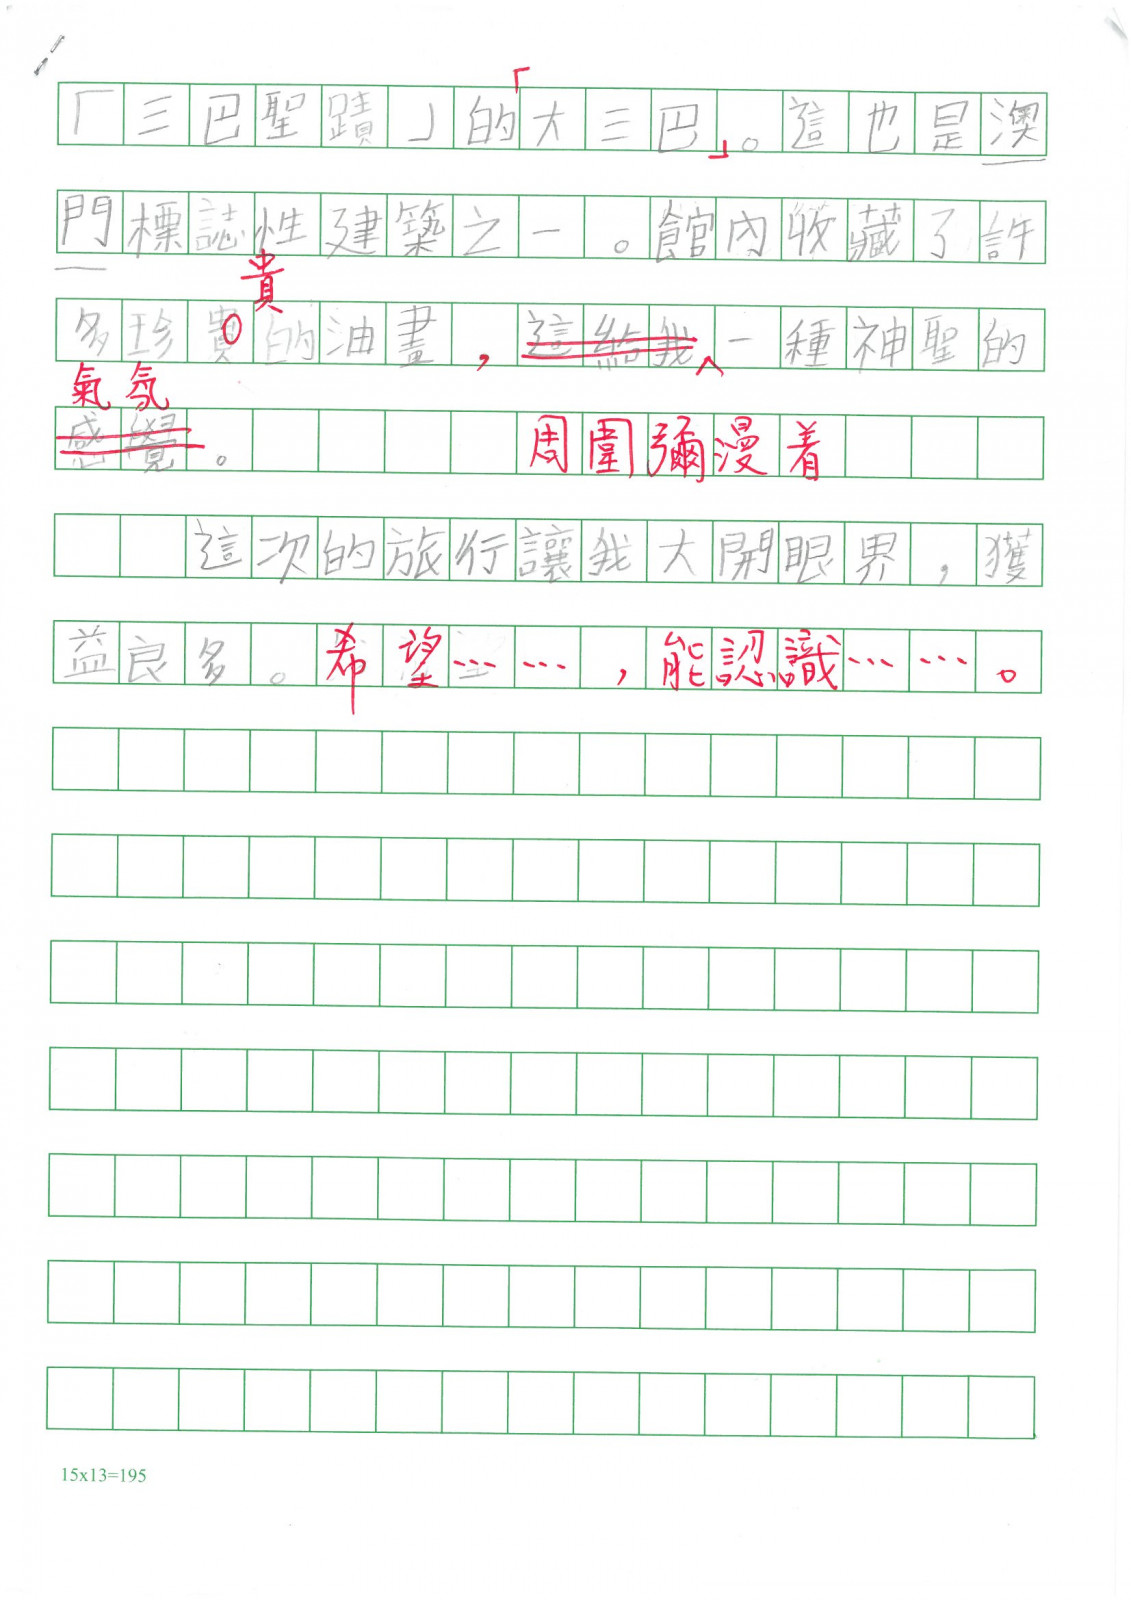 「三巴聖蹟」的「大三巴」。這也是澳
門標誌性建築之一。館內收藏了許
貴
多珍貴的油畫，這給我一種神聖的
氣氛
感覺。周圍彌漫着
這次的旅行讓我大開眼界，獲
益良多。希望……，能認識……。
15x13=195